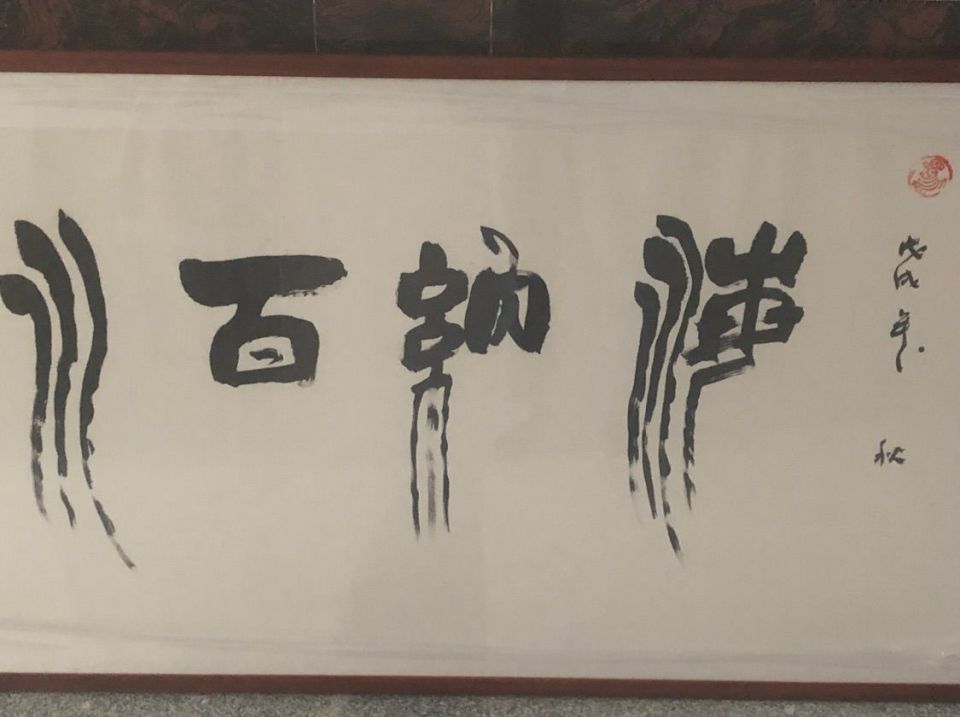 戊戌年
秋
海納百川